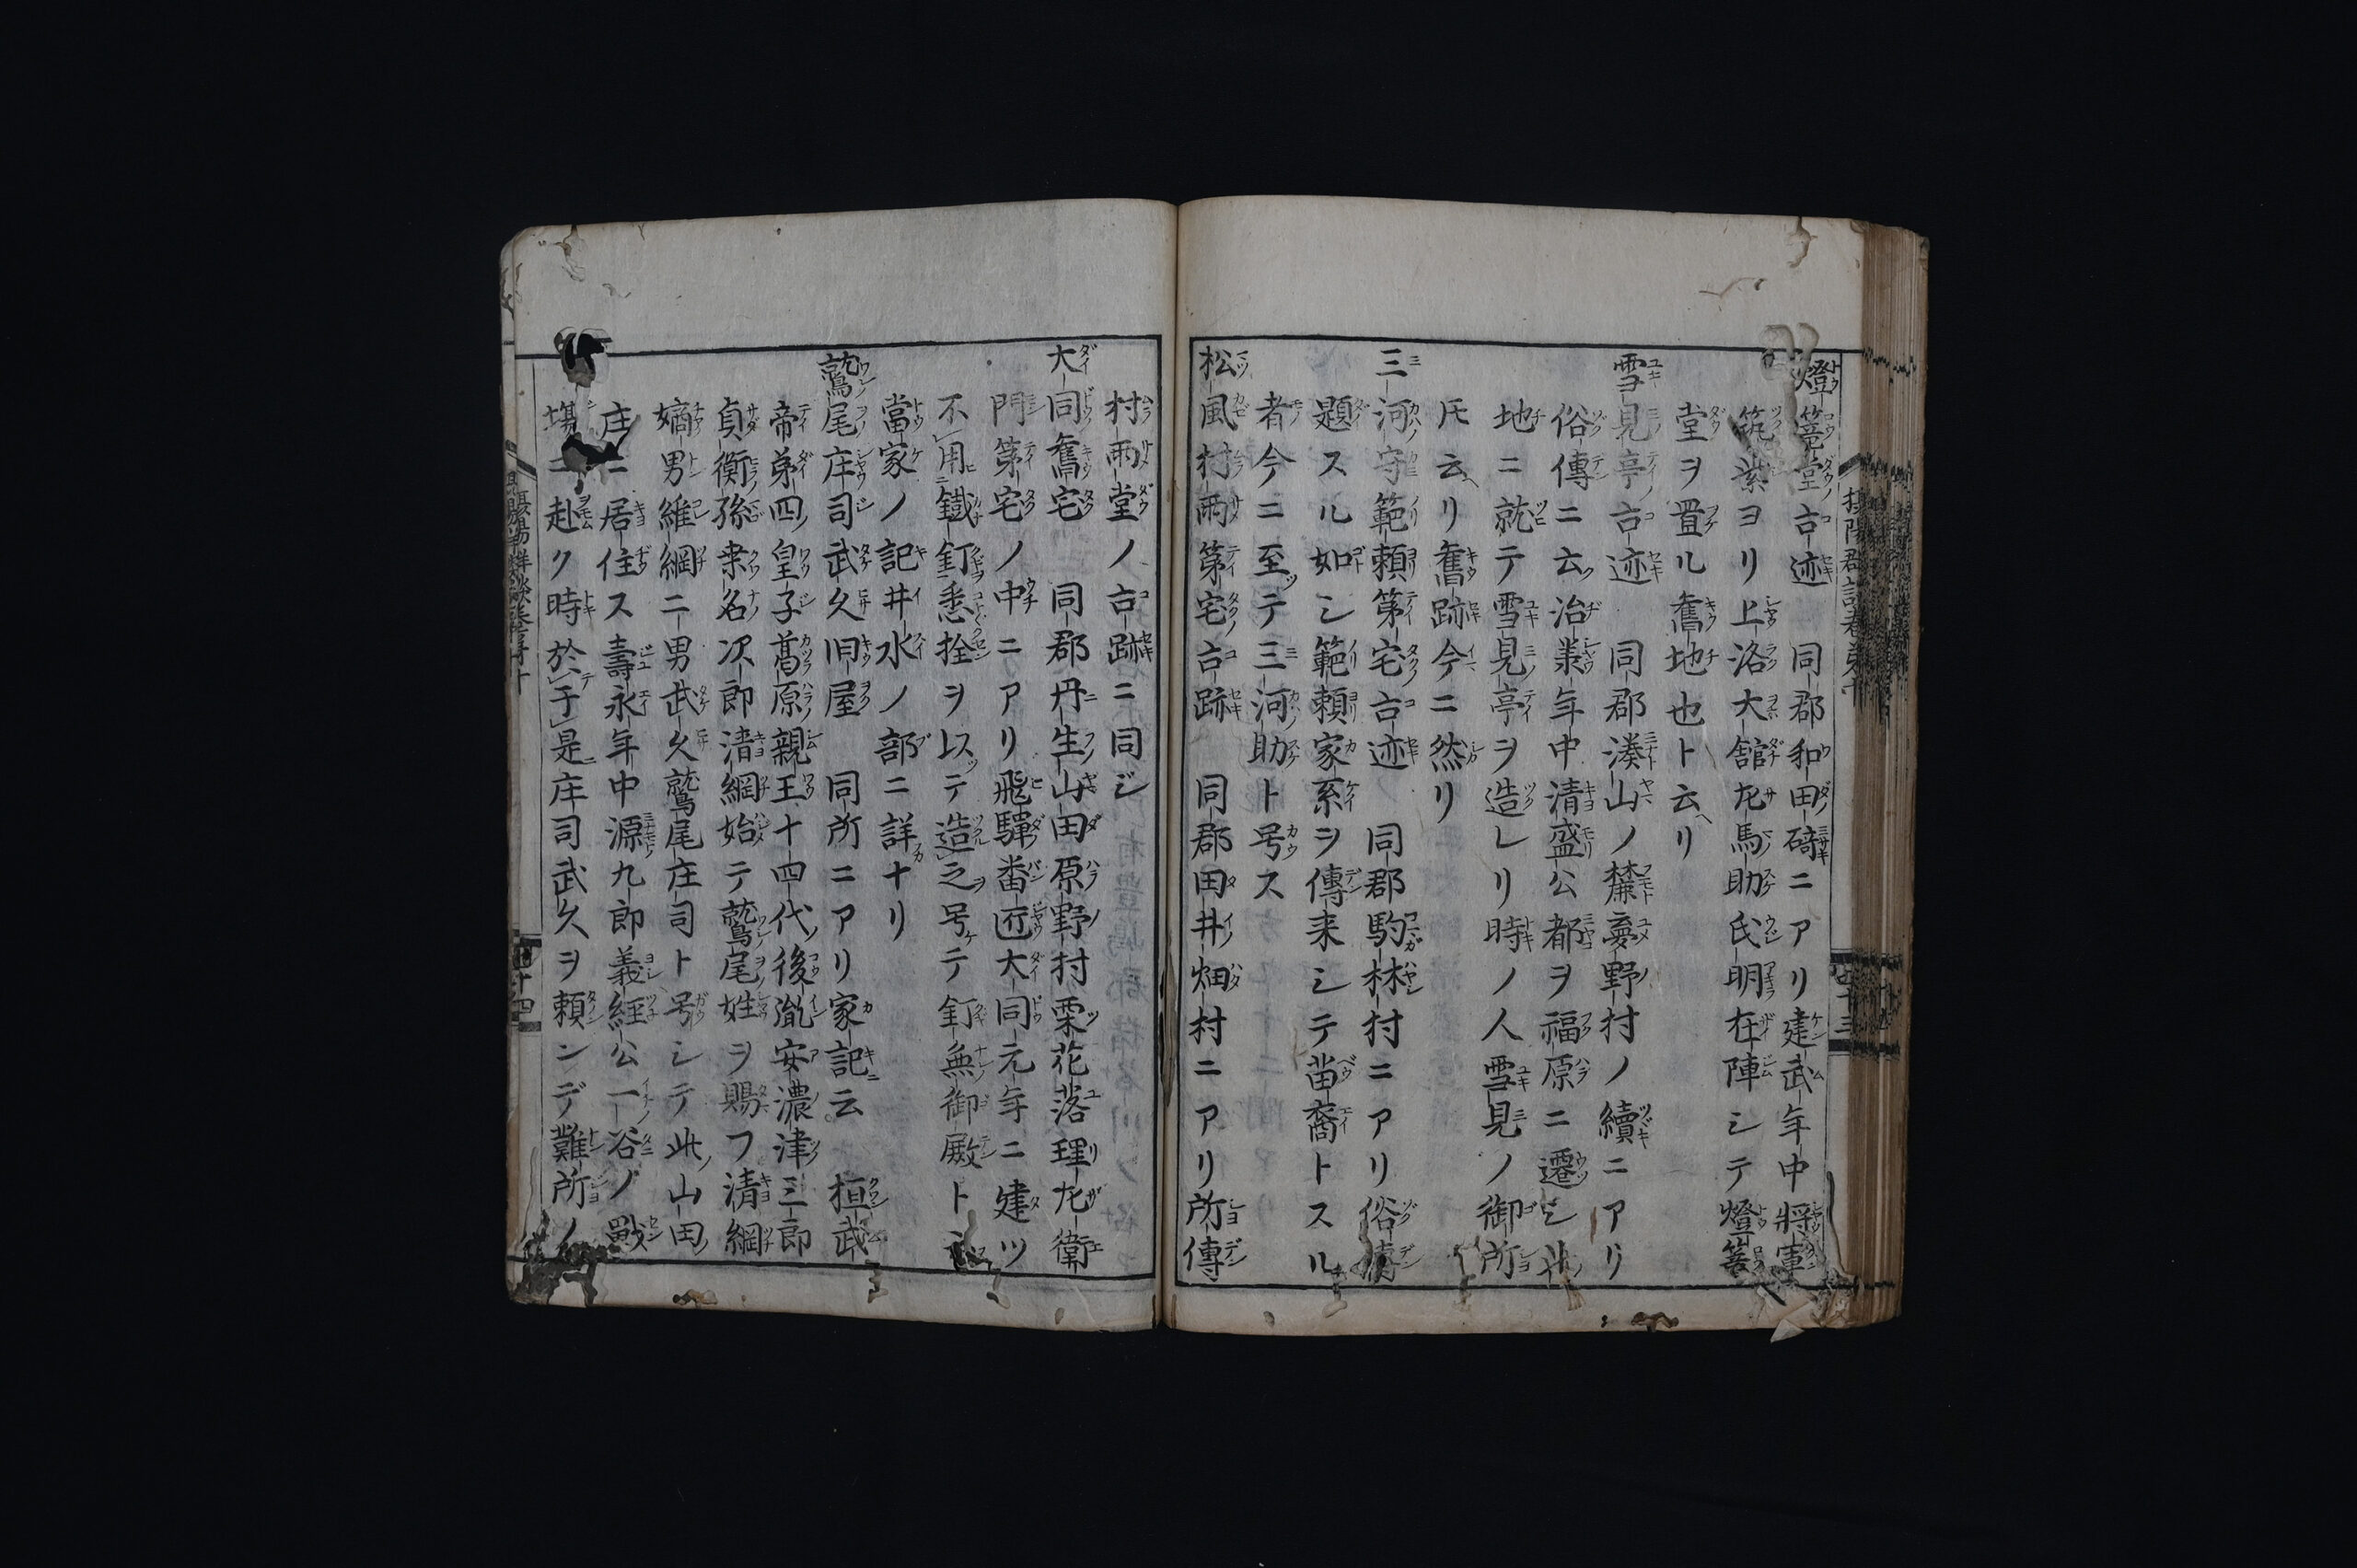 燈篭堂古迹　同郡和田碕ニアリ建武年中將軍
筑紫ヨリ上洛大舘左馬助氏明在陣シテ燈篭
堂ヲ置ル舊地也ト云リ
雪見亭古迹　同郡湊山ノ麓夢野村ノ續ニアリ
俗傳ニ云治業年中清盛公都ヲ福原ニ遷シ此
地ニ就テ雪見亭ヲ造レリ時ノ人雪見ノ御所
圧云リ舊跡今ニ然リ
三河守範頼第宅古迹　同郡駒林村ニアリ俗傳
題スル如シ範頼家系ヲ傳来シテ苗裔トスル
者今ニ至テ三河助ト号ス
松風村雨第宅古跡　同郡田井畑村ニアリ所傳
村雨堂ノ古跡ニ同シ
大同舊宅　同郡丹生山田原野村栗花落理左衛
門第宅ノ中ニアリ飛騨番匠大同元年ニ建ツ
不用鐵釘悉拴ヲ以テ造之号テ釘無御殿ト
當家ノ記井水ノ部ニ詳ナリ
鷲尾庄司武久旧屋　同所ニアリ家記云　桓武
帝第四皇子葛原親王十四代後胤安濃津三郎
貞衡孫桒名次郎清綱始テ鷲尾姓ヲ賜フ清綱
嫡男維綱二男武久鷲尾庄司ト号シテ此山田
庄ニ居住ス壽永年中源九郎義經公一谷ノ戰
場ニ赴ク時於于是庄司武久ヲ頼ンデ難所ノ
攝陽群談巻第十
四十三
四十四